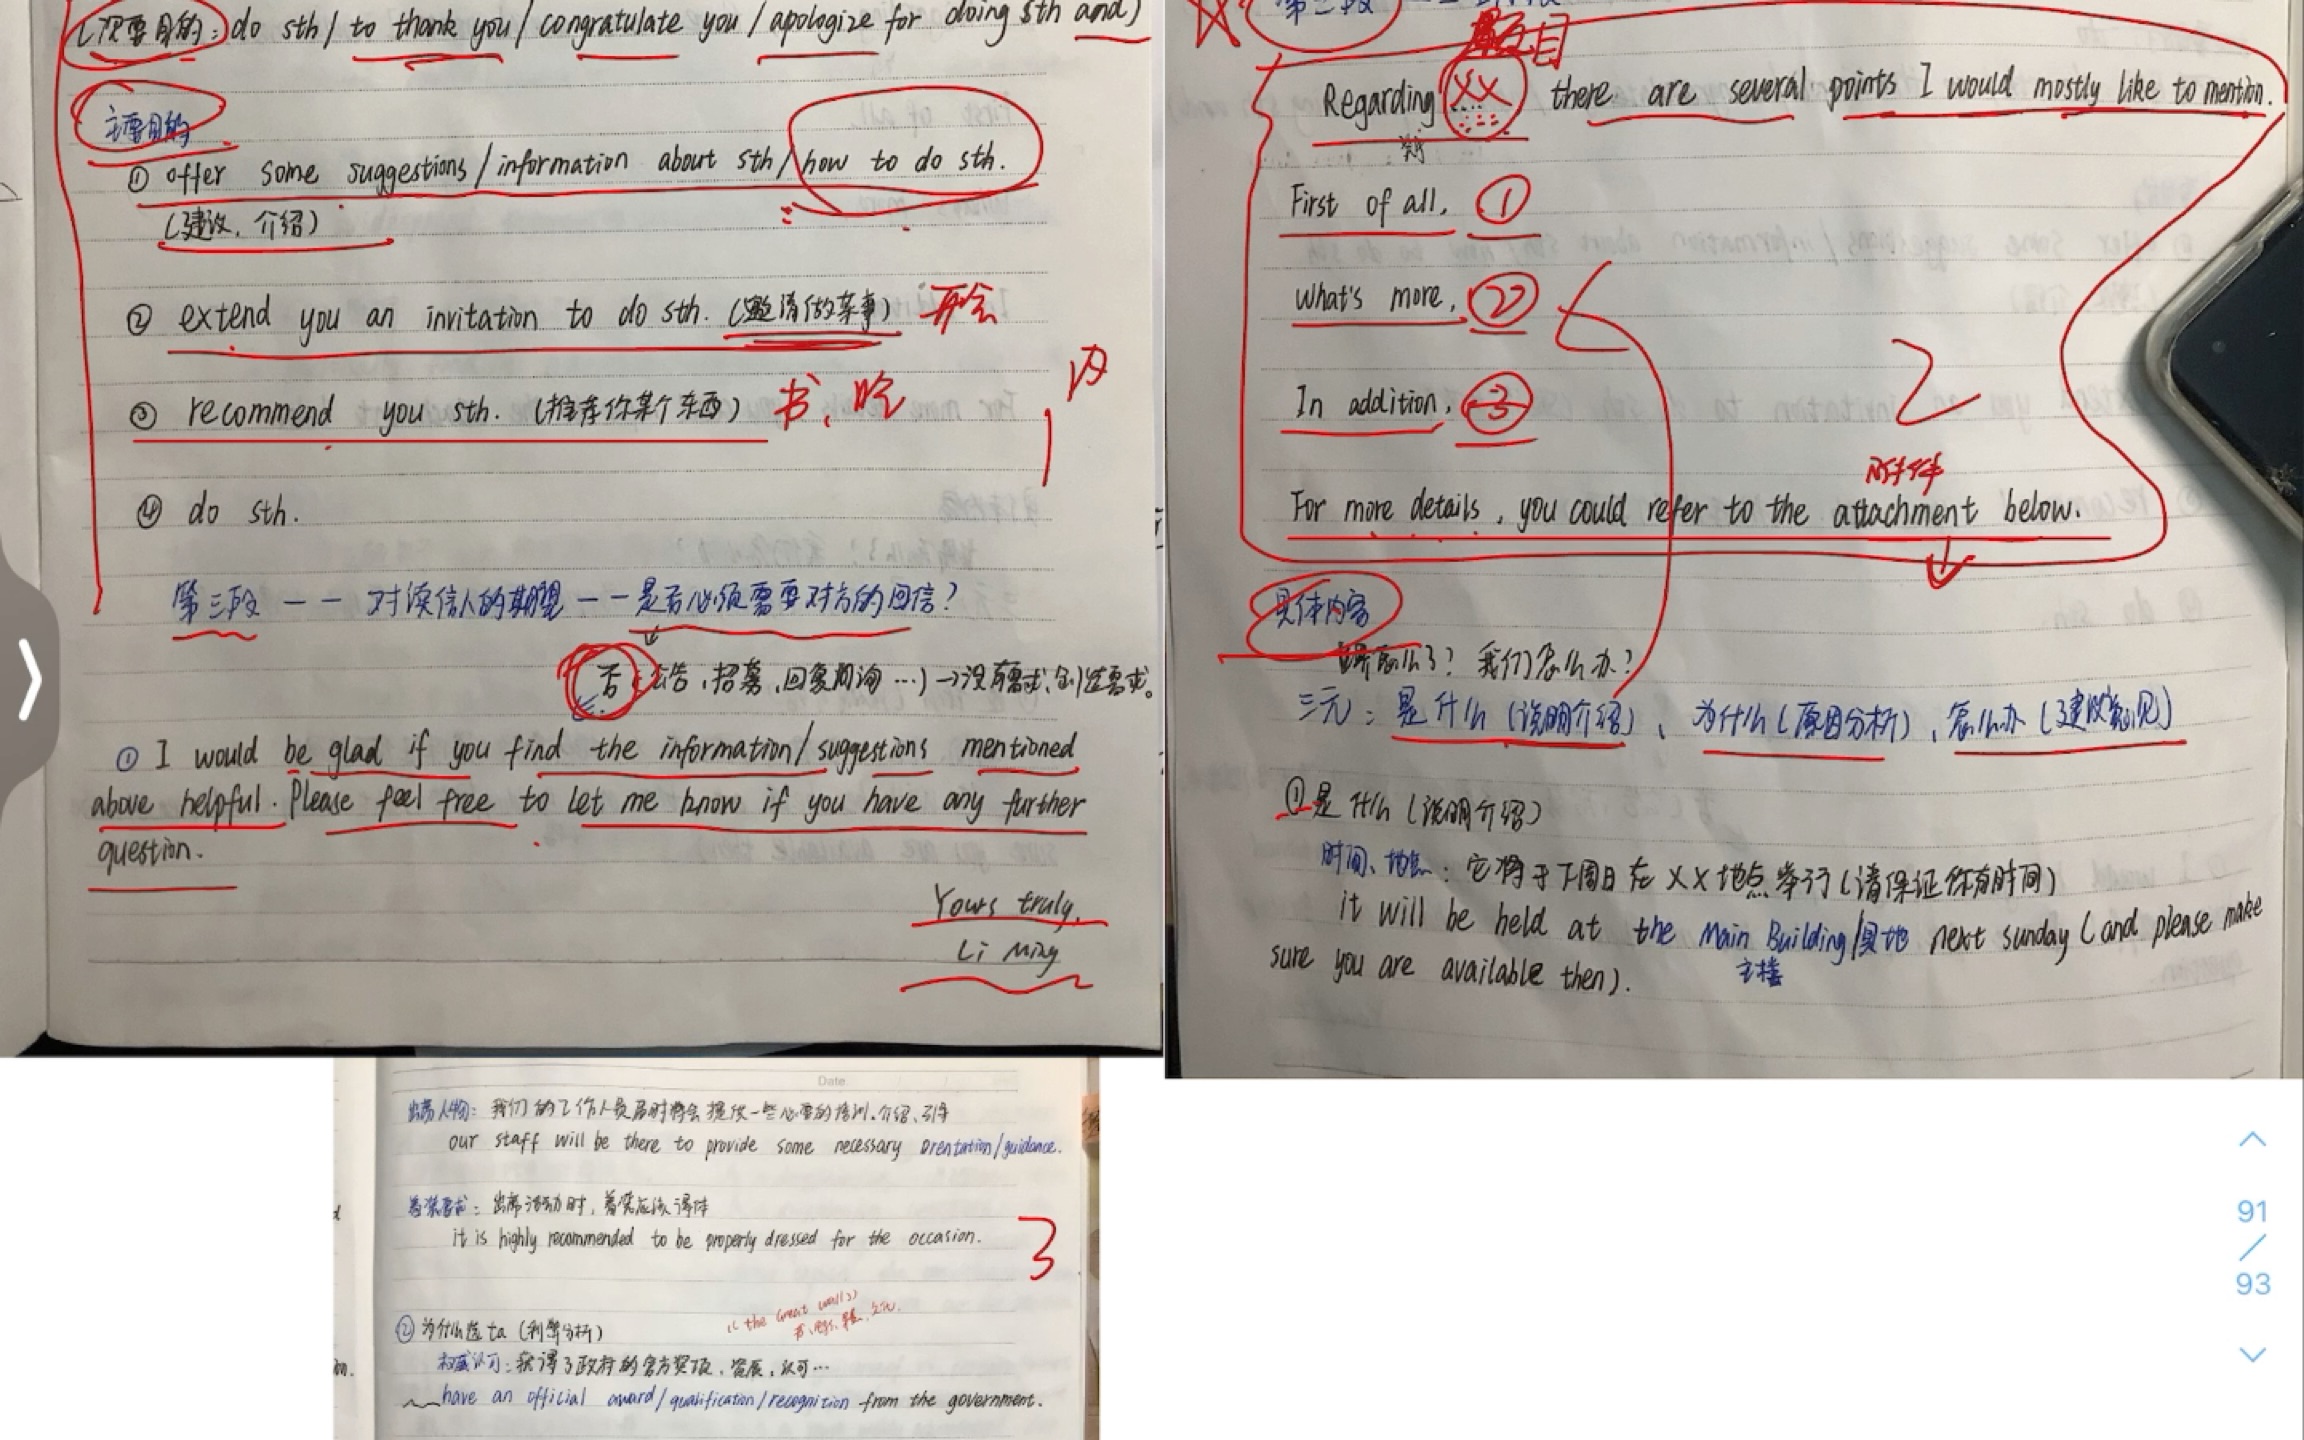 (次要目的: do sth / to thank you / congratulate you / apologize for doing sth and)
主要目的
① offer some suggestions / information about sth / how to do sth.
(建议, 介绍)
② extend you an invitation to do sth. (邀请做某事) 开会
③ recommend you sth. (推荐你某个东西) 书、
内
④ do sth.
第三段 — — 对读信人的期望 — — 是否必须需要对方的回信?
否: 公告, 招募, 回复询问 …) → 没有需求, 创造需求。
① I would be glad if you find the information / suggestions mentioned
above helpful. Please feel free to let me know if you have any further
question.
Yours truly,
Li Ming
题目
Regarding XX there are several points I would mostly like to mention.
First of all, ①
What's more, ②
In addition, ③
2
附件
For more details, you could refer to the attachment below.
具体内容
怎么了? 我们怎么办?
三元: 是什么 (说明介绍)、为什么 (原因分析)、怎么办 (建议意见)
① 是什么 (说明介绍)
时间、地点: 它将于下周日在XX地点举行 (请保证你有时间)
it will be held at the Main Building/某地 next sunday (and please make
主楼
sure you are available then).
Date.
出席人物: 我们的工作人员届时将会提供一些必要的培训、介绍、引导
our staff will be there to provide some necessary orentation/guidance.
着装要求: 出席活动时, 着装应该得体
it is highly recommended to be properly dressed for the occasion.
3
the Great wall
② 为什么选ta (利弊分析)
权威认可: 获得了政府的官方奖项、资质、认可…
have an official award/qualification/recognition from the government.
91
/
93